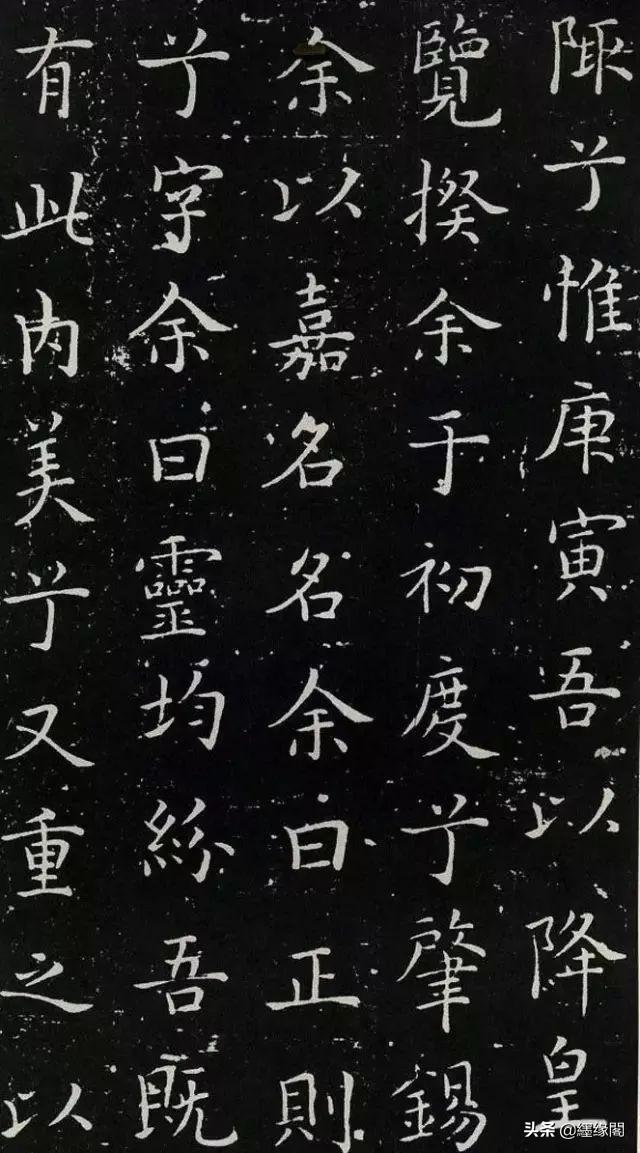 陬兮惟庚寅吾以降皇
覽揆余于初度兮肇錫
余以嘉名名余曰正則
兮字余曰靈均紛吾既
有此内美兮又重之以
头条 @纆缘閣